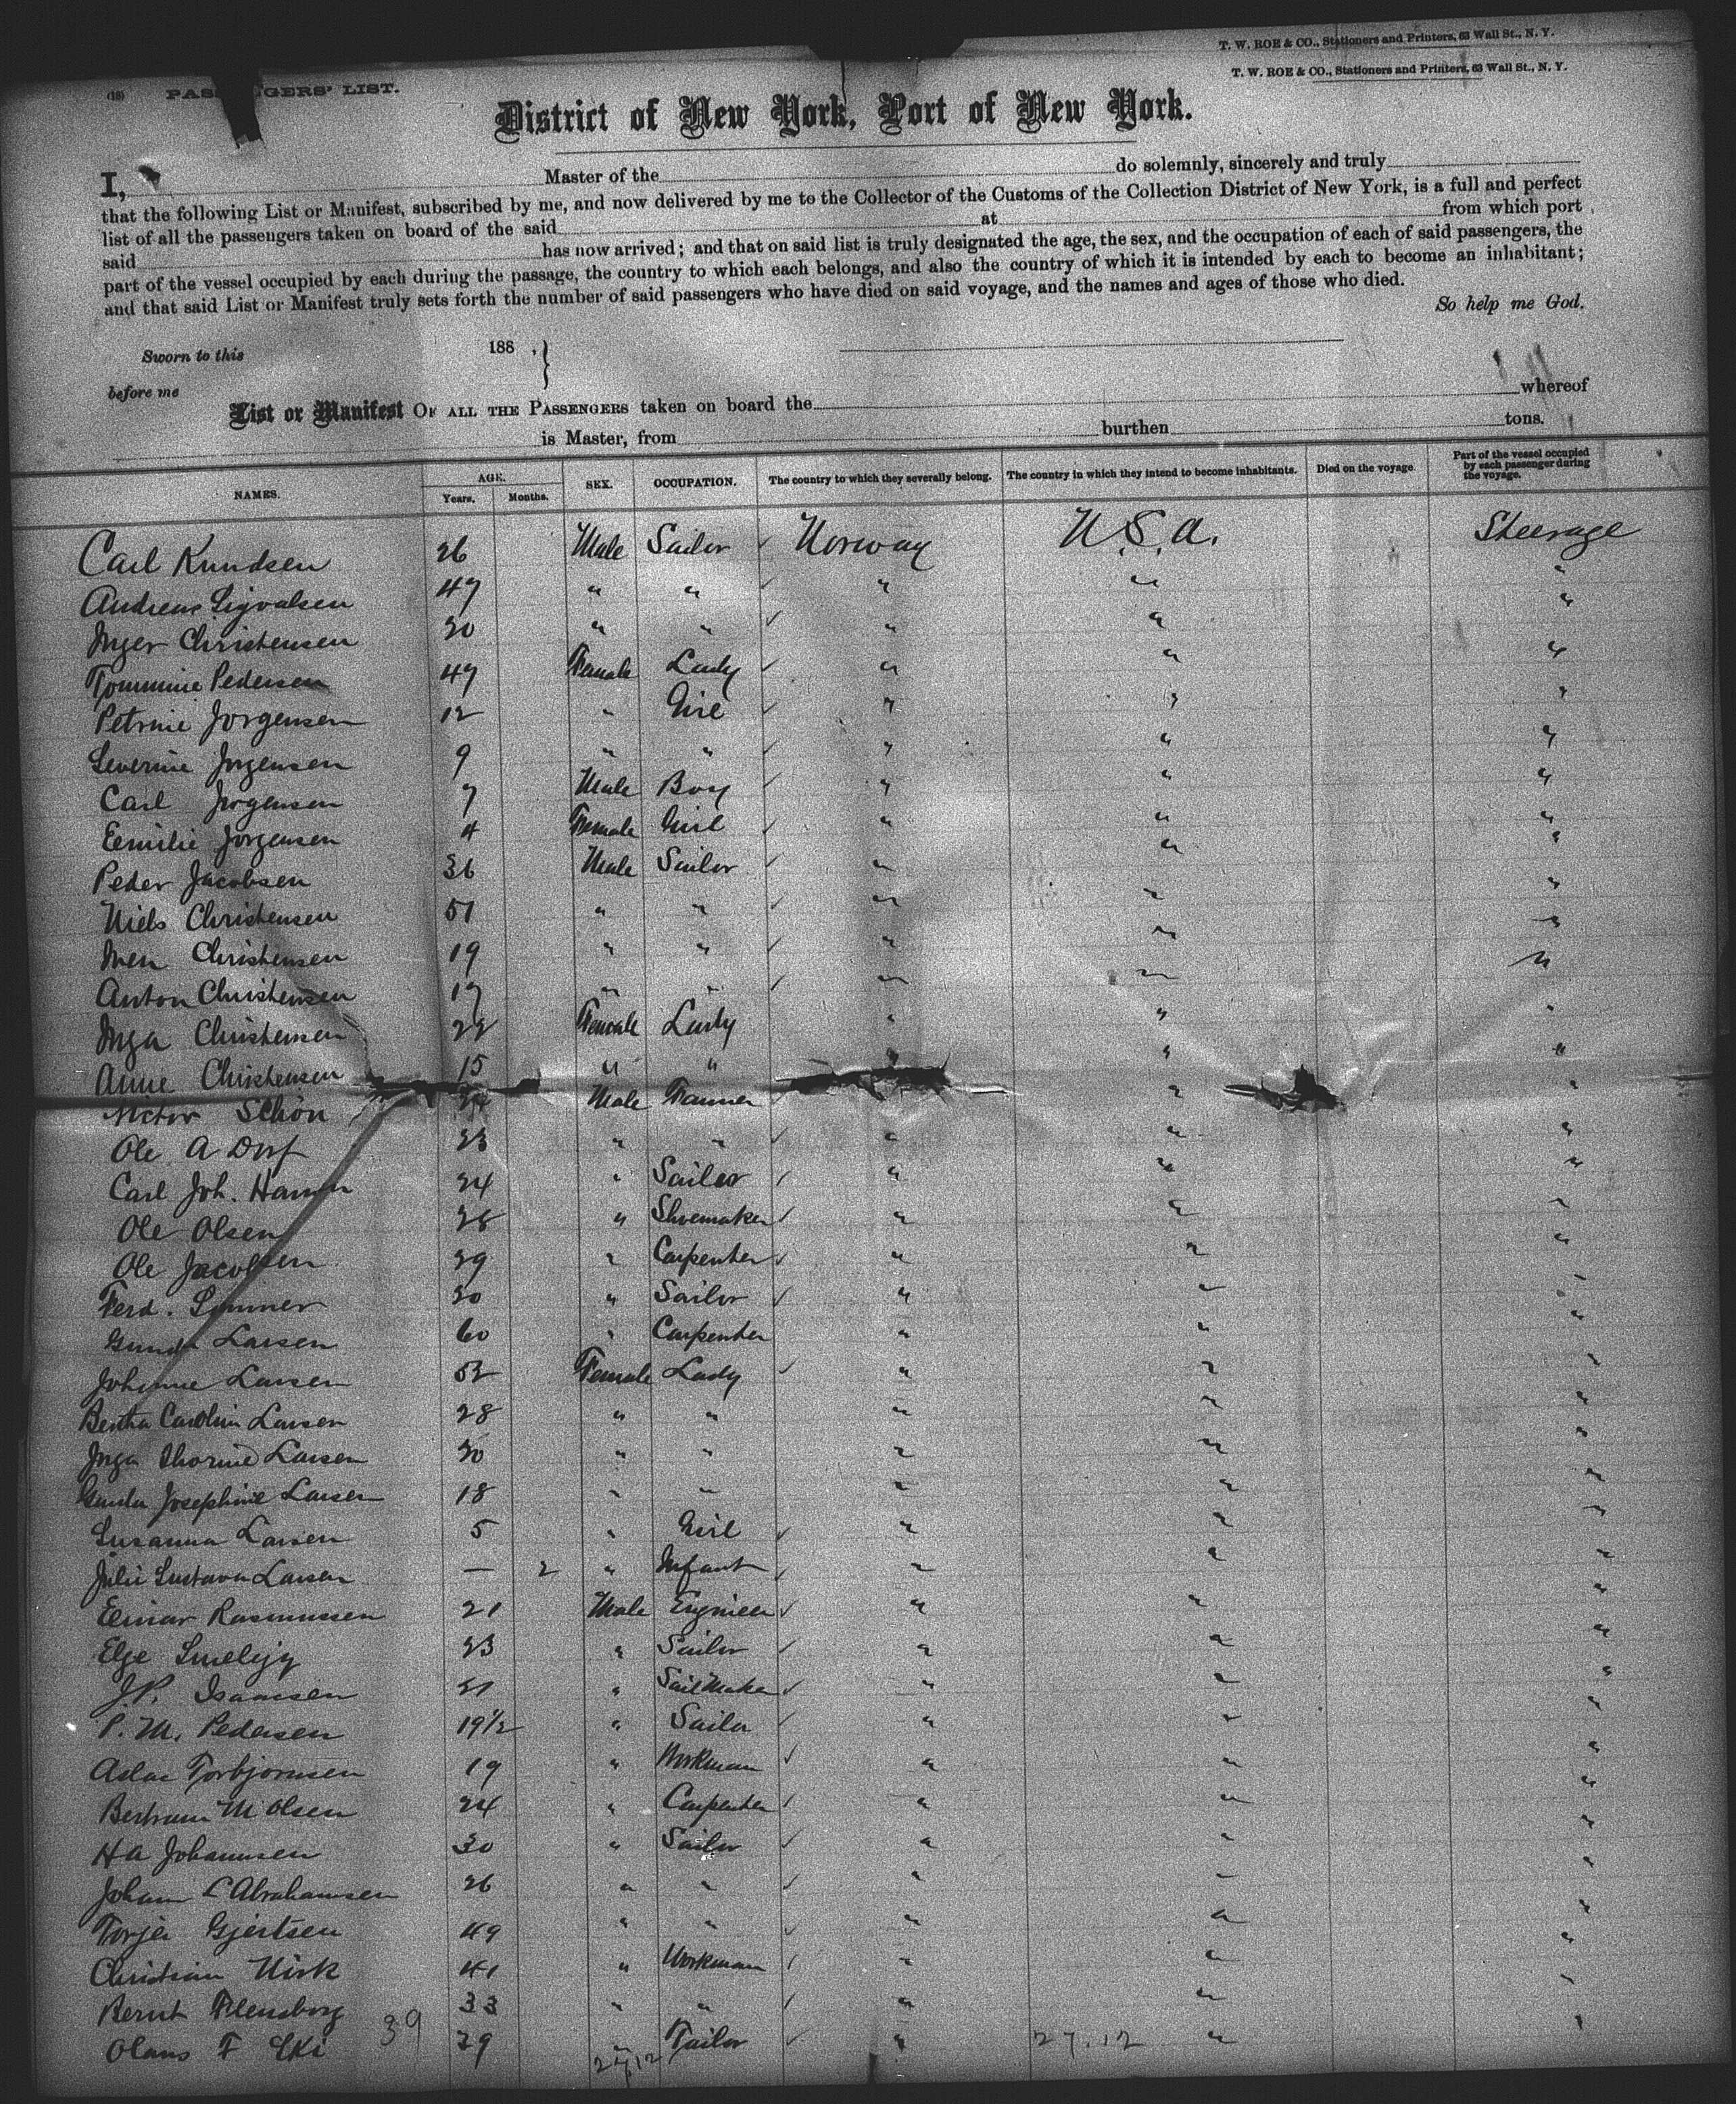 T. W. ROE & CO., Stationers and Printers, 63 Wall St., N. Y.
T. W. ROE & CO., Stationers and Printers, 63 Wall St., N. Y.
(18) PASSENGERS' LIST.
District of New York, Port of New York.
I, Master of the do solemnly, sincerely and truly
that the following List or Manifest, subscribed by me, and now delivered by me to the Collector of the Customs of the Collection District of New York, is a full and perfect
list of all the passengers taken on board of the said at from which port
said has now arrived; and that on said list is truly designated the age, the sex, and the occupation of each of said passengers, the
part of the vessel occupied by each during the passage, the country to which each belongs, and also the country of which it is intended by each to become an inhabitant;
and that said List or Manifest truly sets forth the number of said passengers who have died on said voyage, and the names and ages of those who died.
So help me God.
Sworn to this 188 , }
before me
List or Manifest OF ALL THE PASSENGERS taken on board the whereof
is Master, from burthen tons.
NAMES. AGE. Years. Months. SEX. OCCUPATION. The country to which they severally belong. The country in which they intend to become inhabitants. Died on the voyage Part of the vessel occupied by each passenger during the voyage.
Carl Knudsen 26 Male Sailor ✓ Norway U.S.A. Steerage
Andreas Sigvalsen 47 " " ✓ " " "
Inger Christensen 30 " " ✓ " " "
Tommine Pedersen 47 Female Lady ✓ " " "
Petrine Jorgensen 12 " Girl ✓ " " "
Severine Jorgensen 9 " " ✓ " " "
Carl Jorgensen 7 Male Boy ✓ " " "
Eemilie Jorgensen 4 Female Girl ✓ " " "
Peder Jacobsen 36 Male Sailor ✓ " " "
Niels Christensen 51 " " ✓ " " "
Christensen 19 " " ✓ " " "
Anton Christensen 17 " " ✓ " " "
Inga Christensen 22 Female Lady " " "
Anne Christensen 15 " " " "
Victor Schon Male Farmer " "
Ole A Dorf 23 " " ✓ " " "
Carl Joh. Hansen 24 " Sailor ✓ " " "
Ole Olsen 28 " Shoemaker ✓ " " "
Ole Jacobsen 29 " Carpenter ✓ " " "
Ferd. 30 " Sailor ✓ " " "
Larsen 60 " Carpenter " " "
Johanne Larsen 52 Female Lady ✓ " " "
Bertha Carolin Larsen 28 " " " " "
Inga Thorine Larsen 30 " " " " "
Gunda Josephine Larsen 18 " " " " "
Susanna Larsen 5 " Girl ✓ " " "
Julie Gustava Larsen — 2 " Infant ✓ " " "
Einar Rasmussen 21 Male Engineer ✓ " " "
23 " Sailor ✓ " " "
J.P. Isaacsen " Sail Maker ✓ " " "
P. M. Pedersen 19 1/2 " Sailor ✓ " " "
Aslac Torbjornsen 19 " Workman ✓ " " "
Bertram M Olsen 24 " Carpenter ✓ " " "
H A Johannsen 30 " Sailor ✓ " " "
Johan L Abrahamsen 26 " " ✓ " " "
Torjer Gjertsen 49 " " ✓ " " "
Christian 41 " Workman ✓ " " "
Bernt Flensborg 33 " " ✓ " " "
Olaus F 39 29 " Tailor ✓ " 27.12 " "
27/12